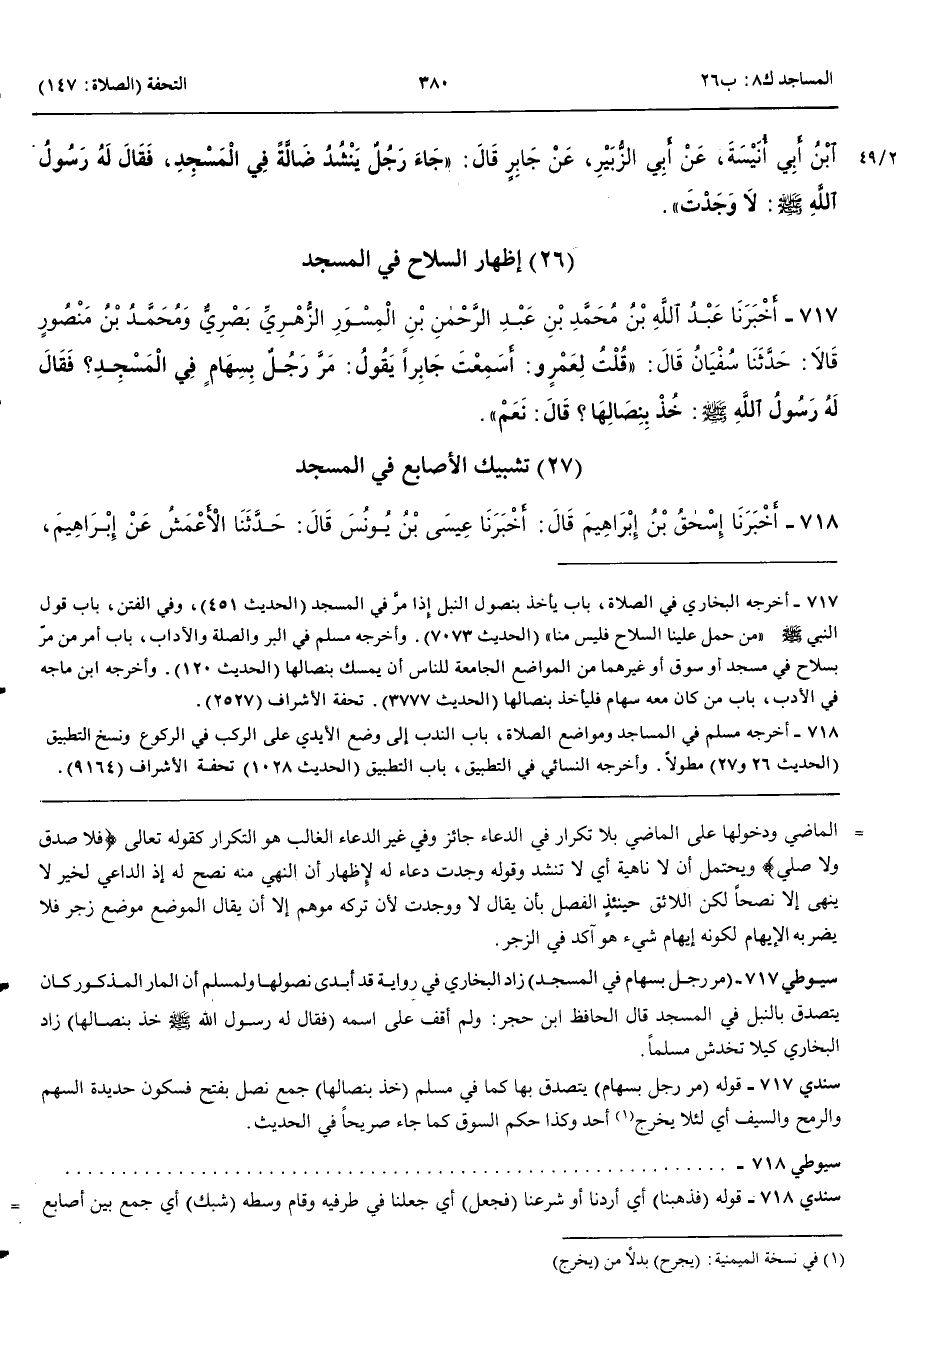 المساجد ك٨: ب٢٦ ٣٨٠ التحفة (الصلاة: ١٤٧)
٤٩/٢ ٱبْنُ أَبِي أُنَيْسَةَ، عَنْ أَبِي الزُّبَيْرِ، عَنْ جَابِرٍ قَالَ: «جَاءَ رَجُلٌ يَنْشُدُ ضَالَّةً فِي الْمَسْجِدِ، فَقَالَ لَهُ رَسُولُ
ٱللَّهِ ﷺ: لَا وَجَدْتَ».
(٢٦) إظهار السلاح في المسجد
٧١٧ - أَخْبَرَنَا عَبْدُ ٱللَّهِ بْنُ مُحَمَّدِ بْنِ عَبْدِ الرَّحْمٰنِ بْنِ الْمِسْوَرِ الزُّهْرِيِّ بَصْرِيٌّ وَمُحَمَّدُ بْنُ مَنْصُورٍ
قَالَا: حَدَّثَنَا سُفْيَانُ قَالَ: «قُلْتُ لِعَمْرٍو: أَسَمِعْتَ جَابِراً يَقُولُ: مَرَّ رَجُلٌ بِسِهَامٍ فِي الْمَسْجِدِ؟ فَقَالَ
لَهُ رَسُولُ ٱللَّهِ ﷺ: خُذْ بِنِصَالِهَا؟ قَالَ: نَعَمْ».
(٢٧) تشبيك الأصابع في المسجد
٧١٨ - أَخْبَرَنَا إِسْحٰقُ بْنُ إِبْرَاهِيمَ قَالَ: أَخْبَرَنَا عِيسَى بْنُ يُونُسَ قَالَ: حَدَّثَنَا الْأَعْمَشُ عَنْ إِبْرَاهِيمَ،
٧١٧ - أخرجه البخاري في الصلاة، باب يأخذ بنصول النبل إذا مرَّ في المسجد (الحديث ٤٥١)، وفي الفتن، باب قول
النبي ﷺ «من حمل علينا السلاح فليس منا» (الحديث ٧٠٧٣). وأخرجه مسلم في البر والصلة والآداب، باب أمر من مرّ
بسلاح في مسجد أو سوق أو غيرهما من المواضع الجامعة للناس أن يمسك بنصالها (الحديث ١٢٠). وأخرجه ابن ماجه
في الأدب، باب من كان معه سهام فليأخذ بنصالها (الحديث ٣٧٧٧). تحفة الأشراف (٢٥٢٧).
٧١٨ - أخرجه مسلم في المساجد ومواضع الصلاة، باب الندب إلى وضع الأيدي على الركب في الركوع ونسخ التطبيق
(الحديث ٢٦ و٢٧) مطولاً. وأخرجه النسائي في التطبيق، باب التطبيق (الحديث ١٠٢٨) تحفة الأشراف (٩١٦٤).
= الماضي ودخولها على الماضي بلا تكرار في الدعاء جائز وفي غير الدعاء الغالب هو التكرار كقوله تعالى ﴿فلا صدق
ولا صلي﴾ ويحتمل أن لا ناهية أي لا تنشد وقوله وجدت دعاء له لإظهار أن النهي منه نصح له إذ الداعي لخير لا
ينهى إلا نصحاً لكن اللائق حينئذٍ الفصل بأن يقال لا ووجدت لأن تركه موهم إلا أن يقال الموضع موضع زجر فلا
يضر به الإيهام لكونه إيهام شيء هو آكد في الزجر.
سيوطي ٧١٧ - (مر رجل بسهام في المسجد) زاد البخاري في رواية قد أبدى نصولها ولمسلم أن المار المذكور كان
يتصدق بالنبل في المسجد قال الحافظ ابن حجر: ولم أقف على اسمه (فقال له رسول الله ﷺ خذ بنصالها) زاد
البخاري كيلا تخدش مسلماً.
سندي ٧١٧ - قوله (مر رجل بسهام) يتصدق بها كما في مسلم (خذ بنصالها) جمع نصل بفتح فسكون حديدة السهم
والرمح والسيف أي لئلا يخرج(١) أحد وكذا حكم السوق كما جاء صريحاً في الحديث.
سيوطي ٧١٨ - . . . . . . . . . . . . . . . . . . . . . . . . . . . . . . . . . . . . . . . . . . . . . . . . . . . . . . . . . . .
سندي ٧١٨ - قوله (فذهبنا) أي أردنا أو شرعنا (فجعل) أي جعلنا في طرفيه وقام وسطه (شبك) أي جمع بين أصابع =
(١) في نسخة الميمنية: (يجرح) بدلاً من (يخرج)